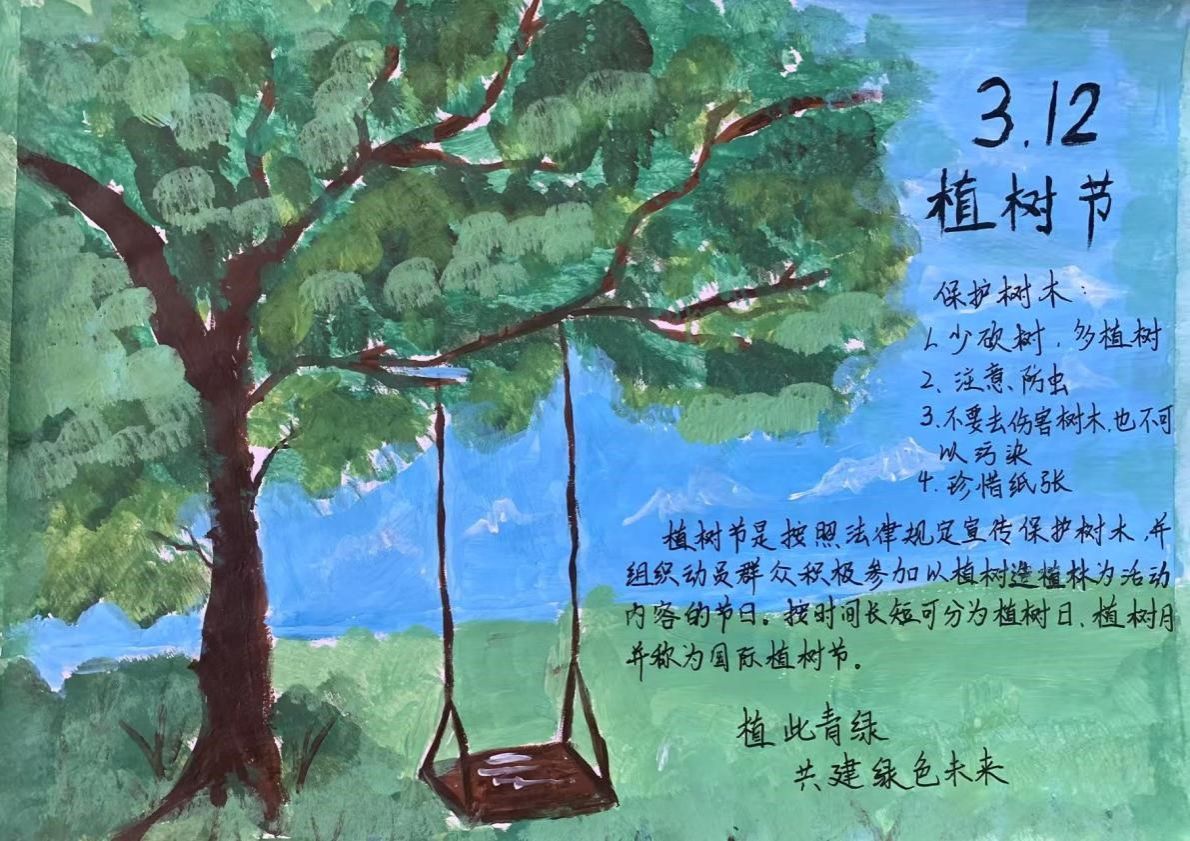 3.12
植树节
保护树木：
1、少砍树，多植树
2、注意、防虫
3.不要去伤害树木,也不可
以污染
4.珍惜纸张
植树节是按照法律规定宣传保护树木,并
组织动员群众积极参加以植树造植林为活动
内容的节日。按时间长短可分为植树日、植树月
并称为国际植树节。
植此青绿
共建绿色未来